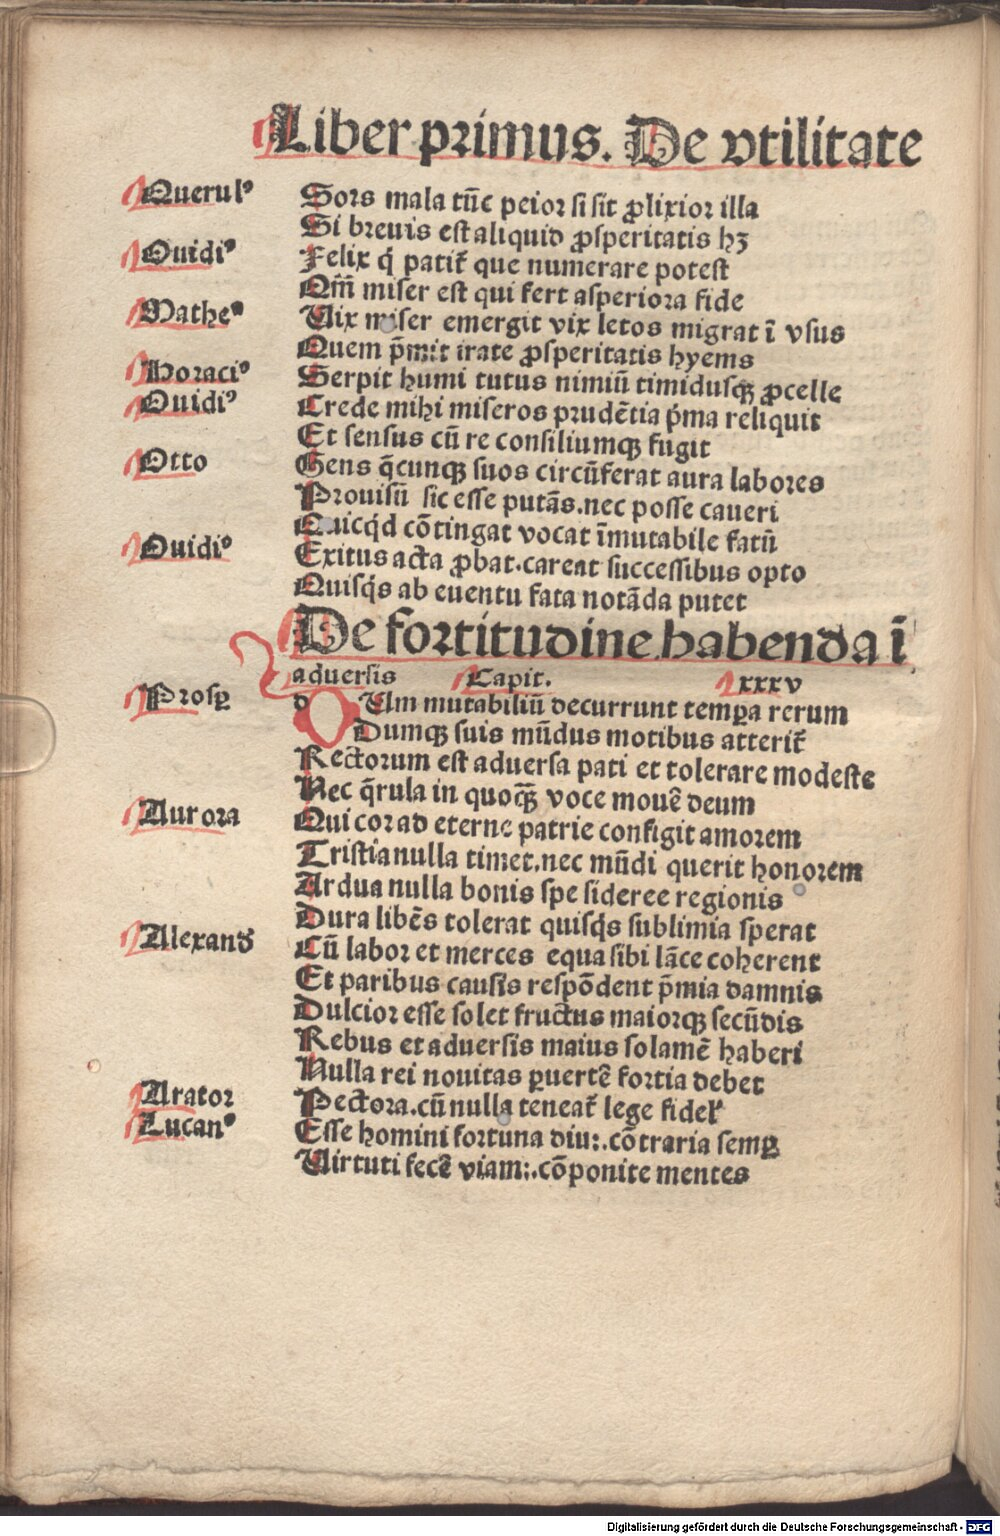 Liber primus. De vtilitate
Querulꝰ Sors mala tūc peior si sit ꝓlixior illa
Si breuis est aliquid ꝓsperitatis hꝫ
Ouidiꝰ Felix q̇ patit᷑ que numerare potest
Om̄ miser est qui fert asperiora fide
Matheꝰ Uix miser emergit vix letos migrat ī vsus
Quem p̄mit irate ꝓsperitatis hyems
Horaciꝰ Serpit humi tutus nimiū timidusqꝫ ꝓcelle
Ouidiꝰ Crede mihi miseros prudētia p̄ma reliquit
Et sensus cū re consiliumqꝫ fugit
Otto Gens q̄cunqꝫ suos circūferat aura labores
Prouisū sic esse putās.nec posse caueri
Quicq̇d cōtingat vocat īmutabile fatū
Ouidiꝰ Exitus acta ꝓbat.careat successibus opto
Quisq̇s ab euentu fata notāda putet
De fortitudine habenda ī
aduersis Capit. xxxv
Prosꝑ dUm mutabiliū decurrunt tempꝑa rerum
Dumqꝫ suis mūdus motibus atterit᷑
Rectorum est aduersa pati et tolerare modeste
Nec q̄rula in quoqꝫ̄ voce mouē deum
Aurora Qui cor ad eterne patrie configit amorem
Tristia nulla timet.nec mūdi querit honorem
Ardua nulla bonis spe sideree regionis
Dura libēs tolerat quisq̇s sublimia sperat
Alexand Cū labor et merces equa sibi lāce coherent
Et paribus causis respōdent p̄mia damnis
Dulcior esse solet fructus maiorqꝫ secūdis
Rebus et aduersis maius solamē haberi
Nulla rei nouitas ꝑuertē fortia debet
Arator Pectora.cū nulla teneat᷑ lege fidel'
Lucanꝰ Esse homini fortuna diu:.cōtraria semꝑ
Uirtuti fecē viam:.cōponite mentes
Digitalisierung gefördert durch die Deutsche Forschungsgemeinschaft - DFG